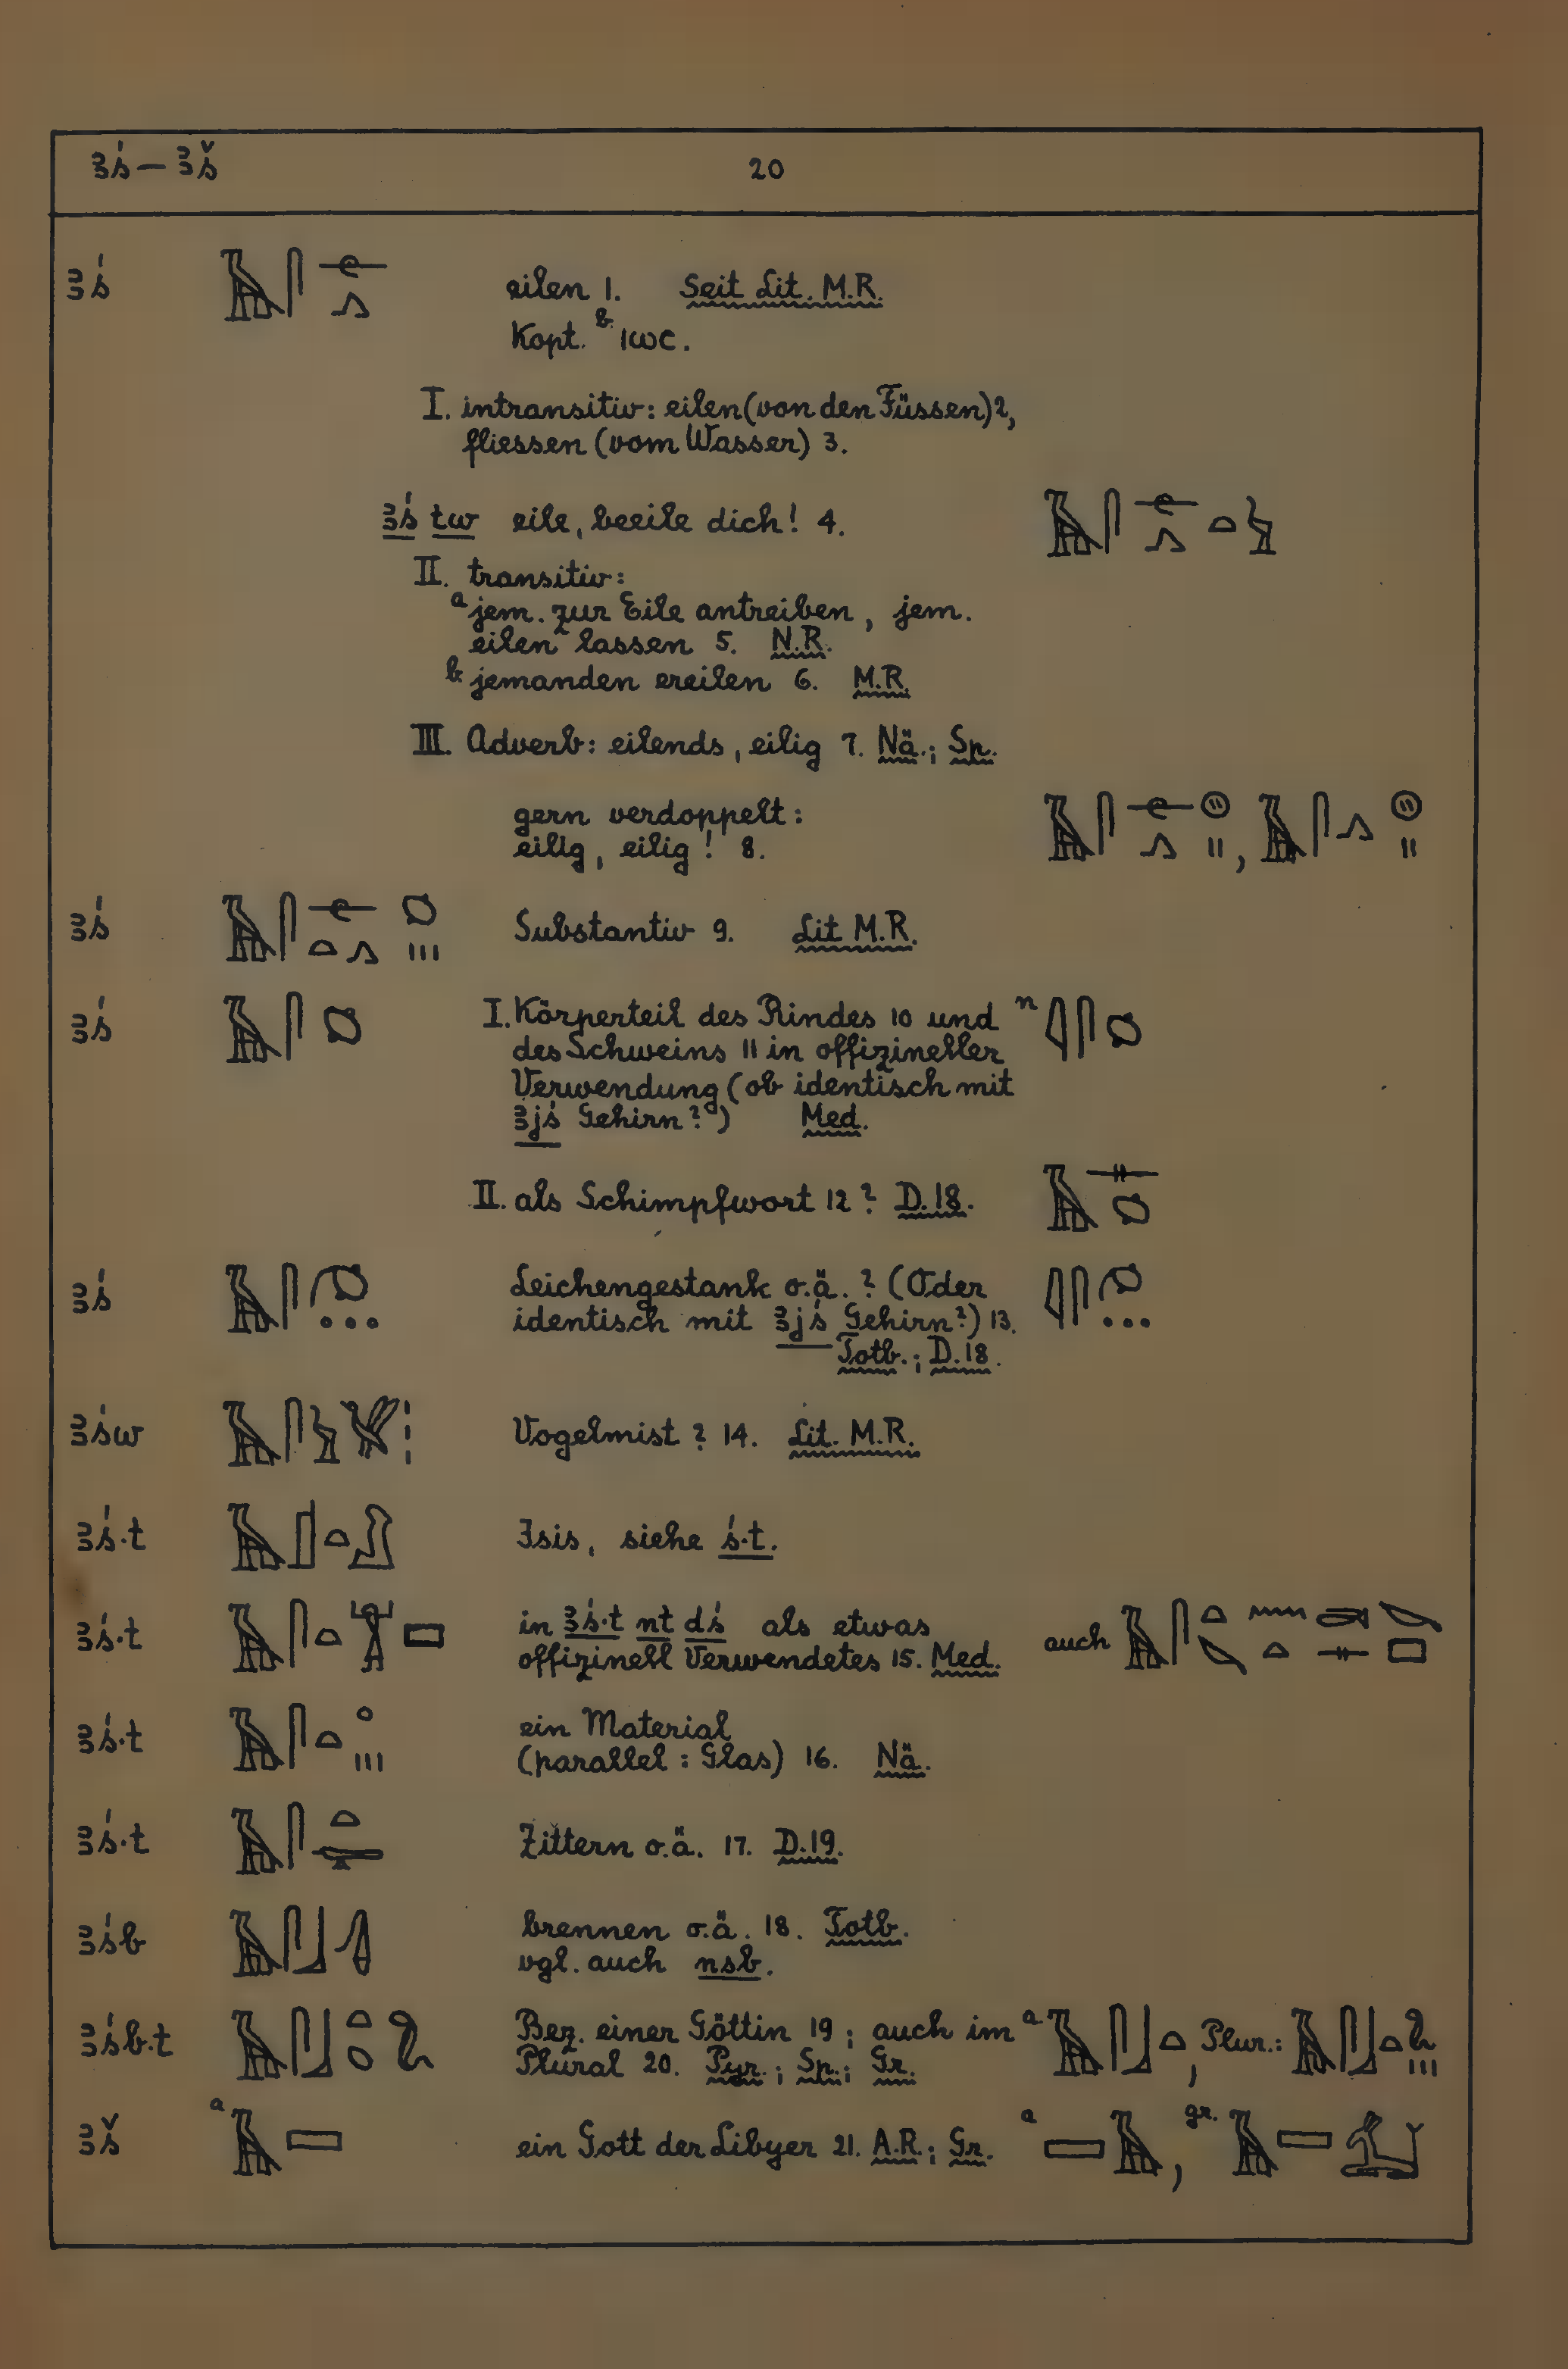 ꜣś – ꜣš 20
ꜣś eilen 1. Seit Lit. M.R.
Kopt. B ⲓⲱⲥ.
I. intransitiv: eilen (von den Füssen) 2,
fliessen (vom Wasser) 3.
ꜣś tw eile, beeile dich! 4.
II. transitiv:
a jem. zur Eile antreiben, jem.
eilen lassen 5. N.R.
b jemanden ereilen 6. M.R.
III. Adverb: eilends, eilig 7. Nä.; Sp.
gern verdoppelt:
eilig, eilig! 8.
ꜣś Substantiv 9. Lit M.R.
ꜣś I. Körperteil des Rindes 10 und n
des Schweins 11 in offizineller
Verwendung (ob identisch mit
ꜣjś Gehirn?) Med.
II. als Schimpfwort 12? D.18.
ꜣś Leichengestank o.ä.? (Oder
identisch mit ꜣjś Gehirn?) 13.
Totb.; D.18.
ꜣśw Vogelmist? 14. Lit. M.R.
ꜣś.t Isis, siehe ś.t.
ꜣś.t in ꜣś.t nt dś als etwas auch
offizinell Verwendetes 15. Med.
ꜣś.t ein Material
(parallel: Glas) 16. Nä.
ꜣś.t Zittern o.ä. 17. D.19.
ꜣśb brennen o.ä. 18. Totb.
vgl. auch nsb.
ꜣśb.t Bez. einer Göttin 19; auch im a , Plur.:
Plural 20. Pyr.; Sp.; Gr.
ꜣš a ein Gott der Libyer 21. A.R.; Gr. a , gr.